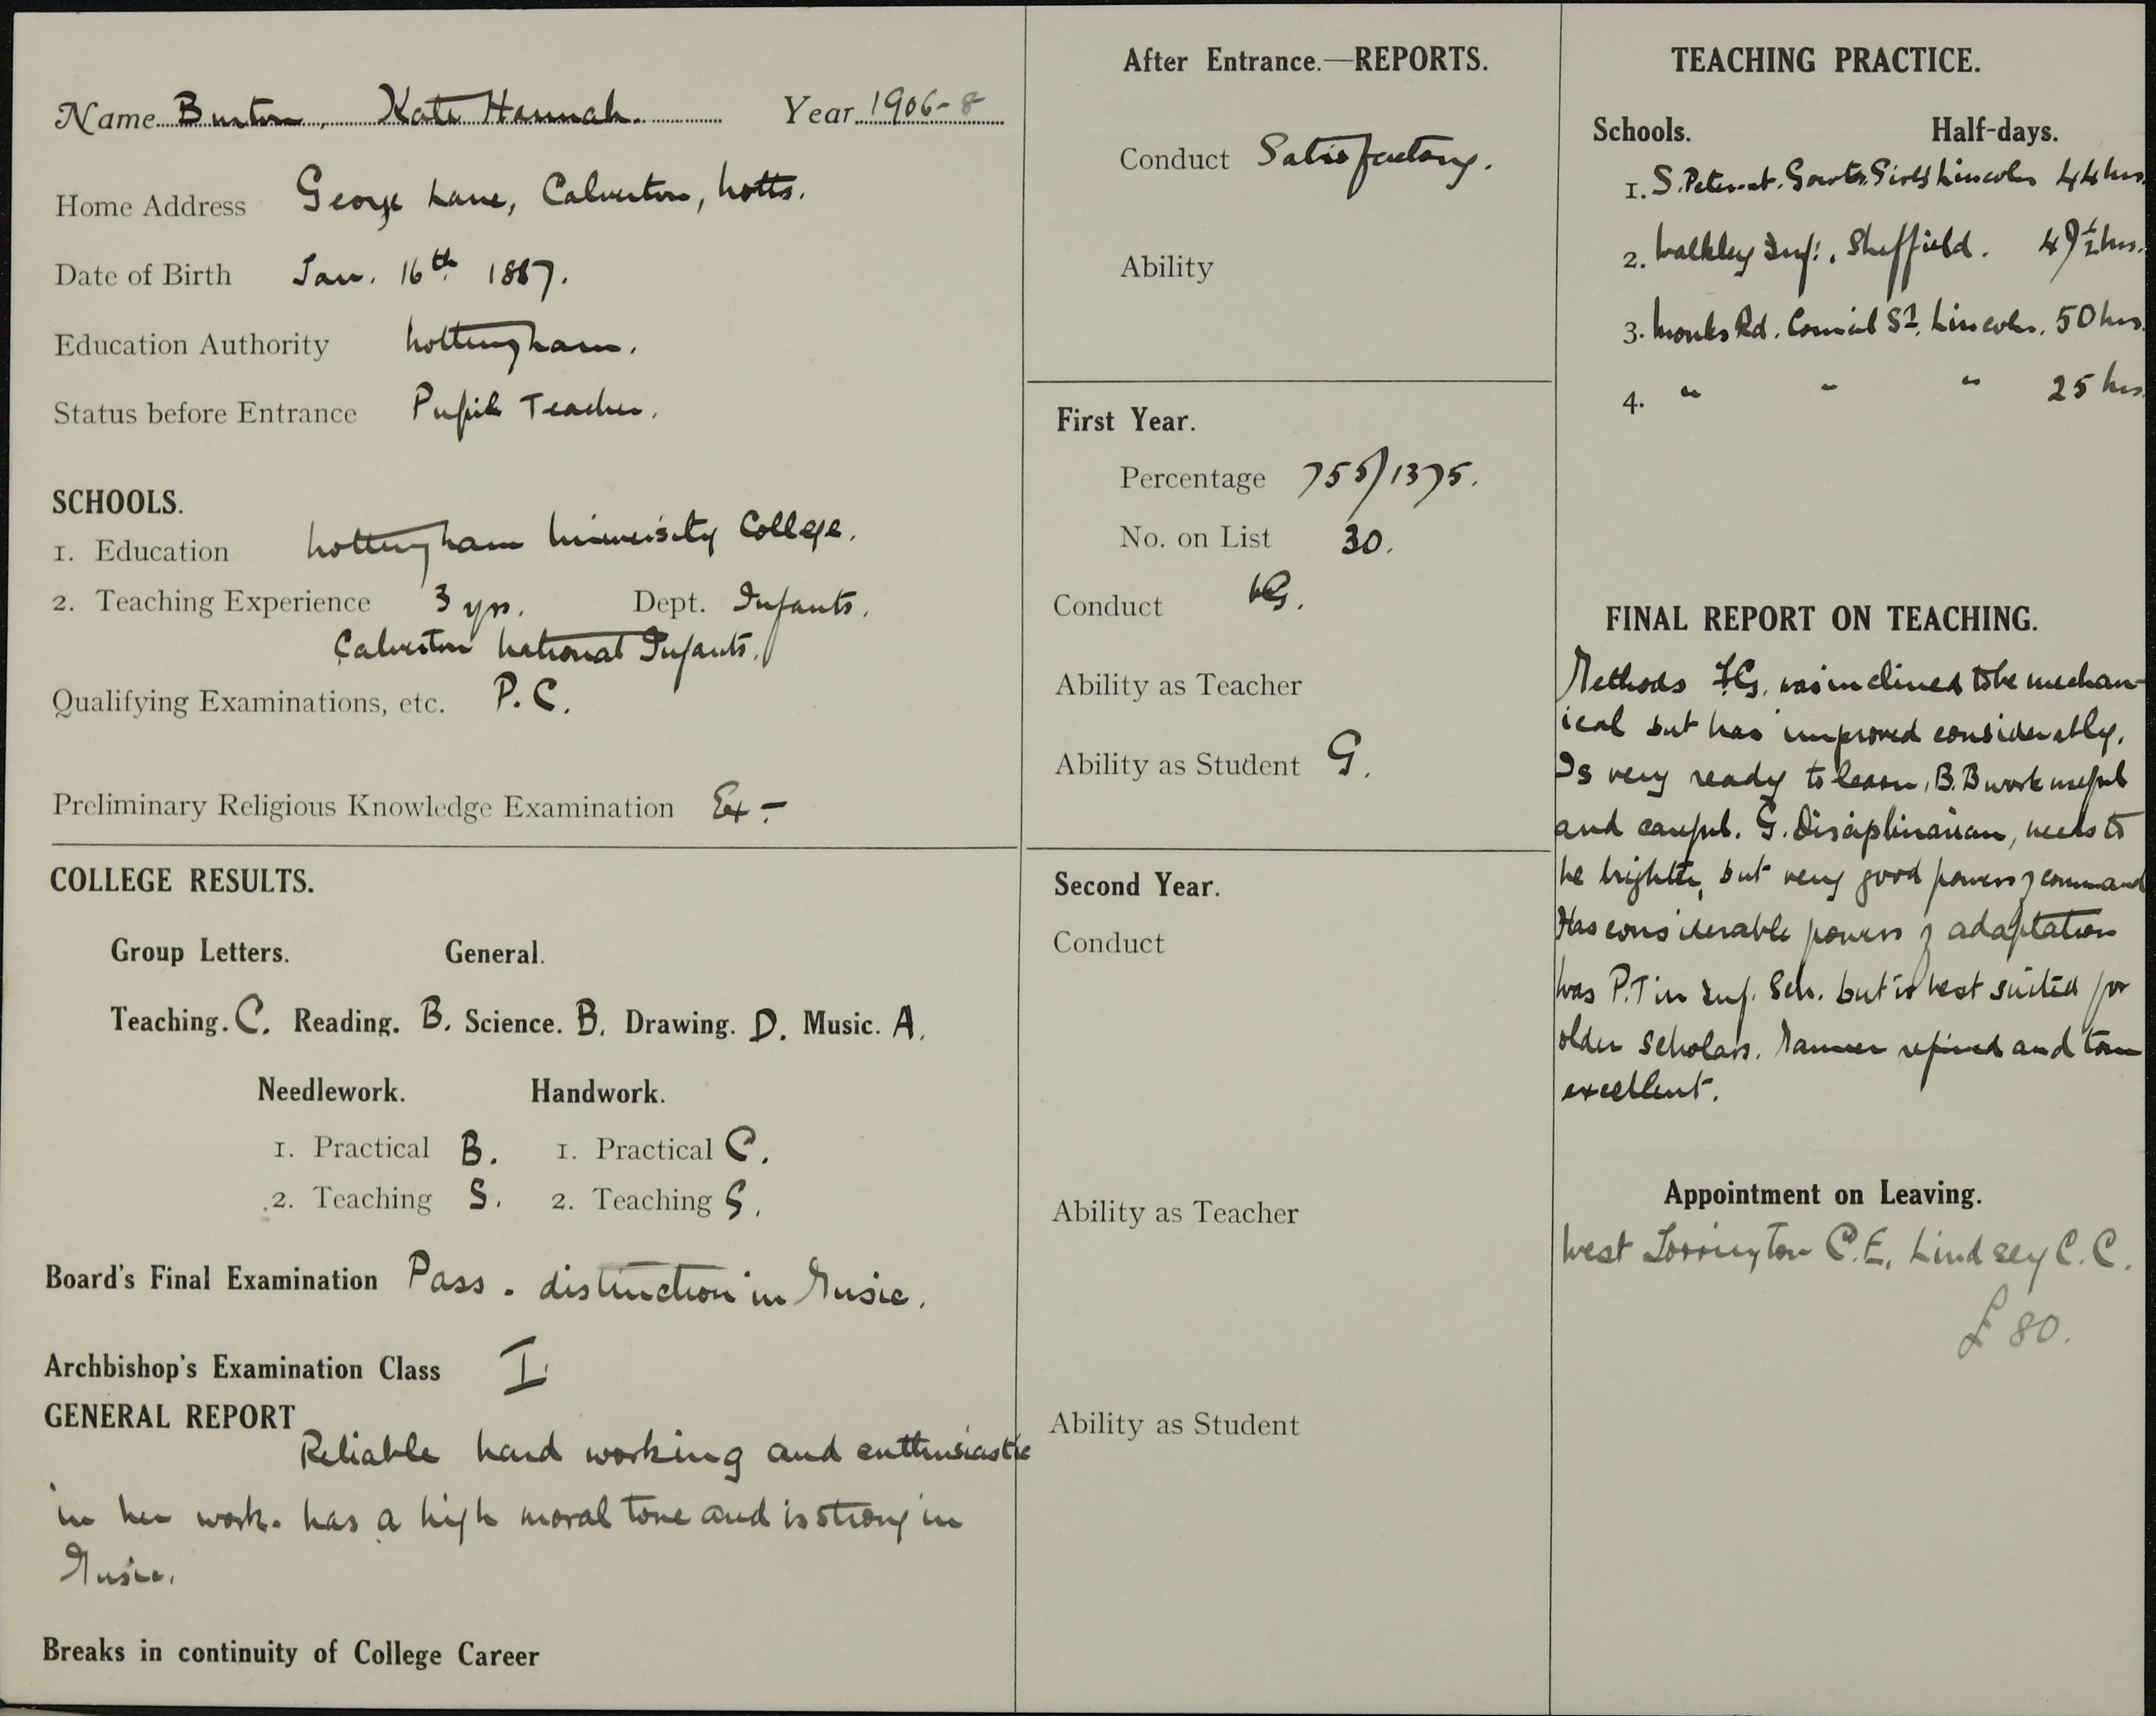 Name Burton, Kate Hannah. Year 1906-8
Home Address George Lane, Calverton, Notts.
Date of Birth Jan. 16th 1887.
Education Authority Nottingham.
Status before Entrance Pupil Teacher.
SCHOOLS.
1. Education Nottingham University College.
2. Teaching Experience 3 yrs. Dept. Infants.
Calverton National Infants.
Qualifying Examinations, etc. P.C.
Preliminary Religious Knowledge Examination Ex -
COLLEGE RESULTS.
Group Letters. General.
Teaching. C. Reading. B. Science. B. Drawing. D. Music. A.
Needlework. Handwork.
1. Practical B. 1. Practical C.
2. Teaching S. 2. Teaching S.
Board's Final Examination Pass. distinction in Music.
Archbishop's Examination Class I.
GENERAL REPORT
Reliable hard working and enthusiastic
in her work. has a high moral tone and is strong in
Music.
Breaks in continuity of College Career
After Entrance.—REPORTS.
Conduct Satisfactory.
Ability
First Year.
Percentage 755/1375.
No. on List 30.
Conduct VG.
Ability as Teacher
Ability as Student G.
Second Year.
Conduct
Ability as Teacher
Ability as Student
TEACHING PRACTICE.
Schools. Half-days.
1. S. Peter-at-Gowts Girls Lincoln 44 hrs.
2. Walkley Inf:, Sheffield. 47½ hrs.
3. Monks Rd. Council Sl, Lincoln. 50 hrs.
4. " " " 25 hrs.
FINAL REPORT ON TEACHING.
Methods FG. was inclined to be mechan-
ical but has improved considerably.
Is very ready to learn, B.B work useful
and careful. G. Disciplinarian, needs to
be brighter, but very good powers of command
Has considerable powers of adaptation
was P.T in Inf. Sch. but is best suited for
older scholars. Manner refined and tone
excellent.
Appointment on Leaving.
West Torrington C.E. Lindsey C.C.
£80.